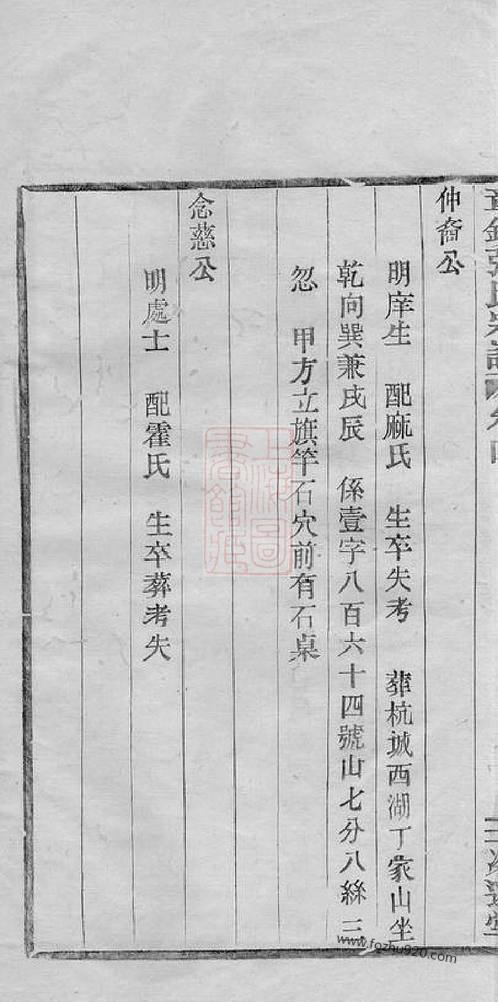 仲裔公
明庠生 配麻氏 生卒失考 葬杭城西湖丁家山坐
乾向巽兼戌辰 係壹字八百六十四號山七分八絲三
忽 甲方立旗竿石穴前有石桌
念慈公
明處士 配霍氏 生卒葬考失
上海圖書館藏
www.fozhu920.com